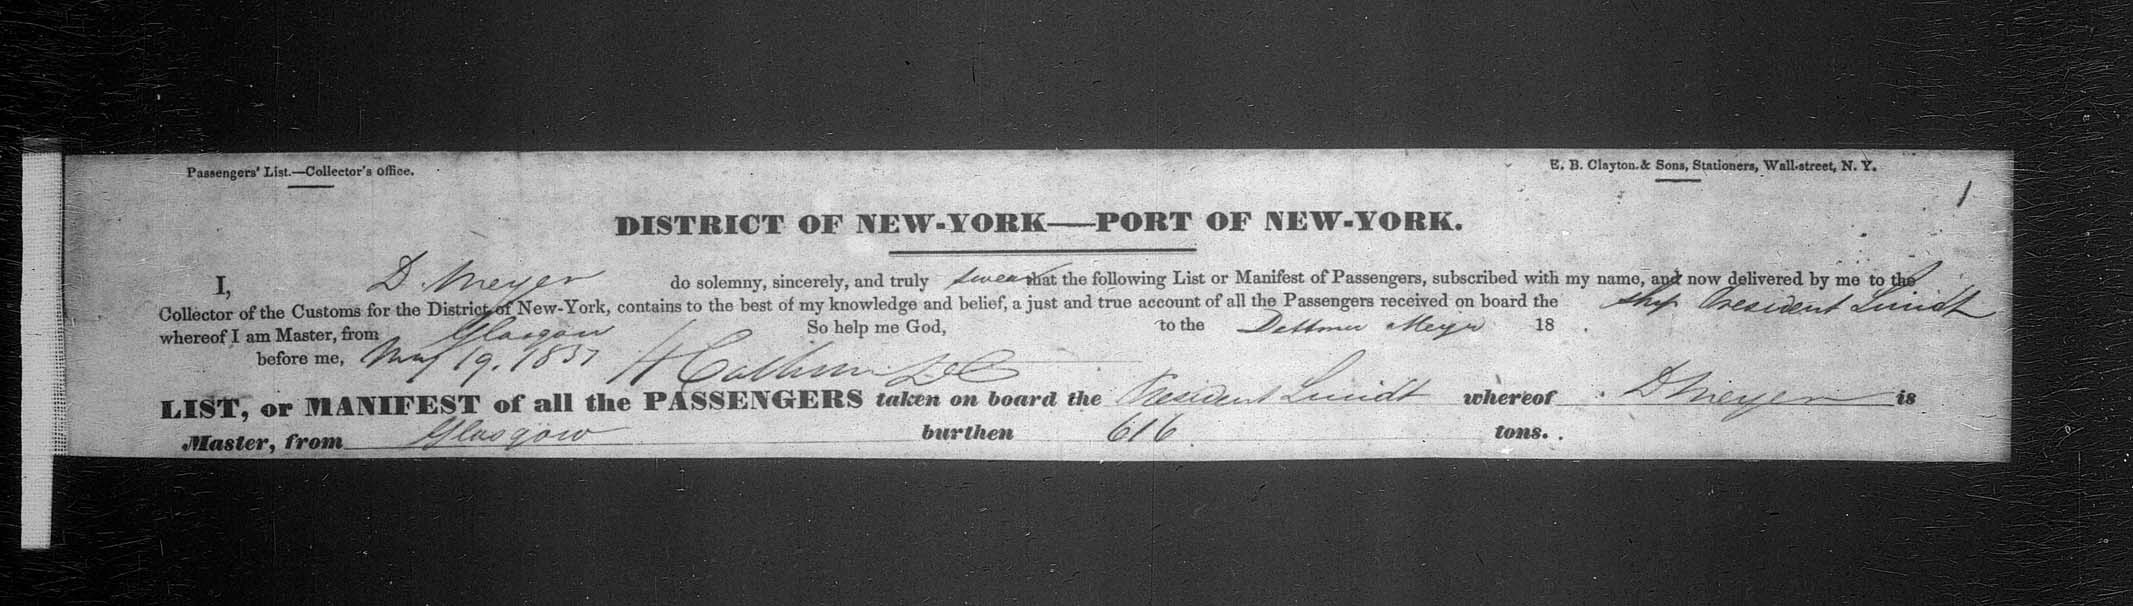 Passengers' List.—Collector's Office.
E. B. Clayton & Sons, Stationers, Wall-street, N. Y.
1
DISTRICT OF NEW-YORK—PORT OF NEW-YORK.
I, D. Meyer do solemny, sincerely, and truly swear that the following List or Manifest of Passengers, subscribed with my name, and now delivered by me to the
Collector of the Customs for the District of New-York, contains to the best of my knowledge and belief, a just and true account of all the Passengers received on board the ship President Smidt
whereof I am Master, from Glasgow So help me God, to the Dettmer Meyer 18 .
before me, May 19. 1857 H Calhoun
LIST, or MANIFEST of all the PASSENGERS taken on board the President Smidt whereof D Meyer is
Master, from Glasgow burthen 616 tons.